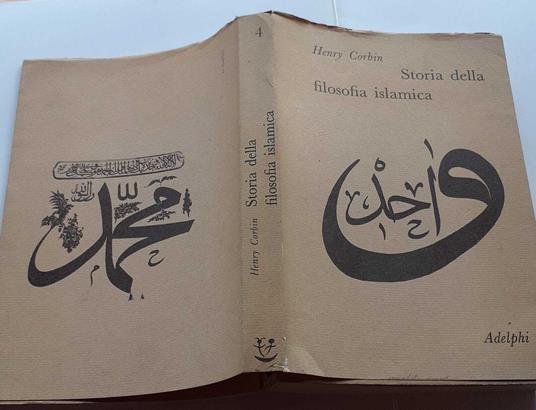 Henry Corbin
Storia della
filosofia islamica
واحد
Adelphi
4
Henry Corbin Storia della
filosofia islamica
محمد
رسول الله